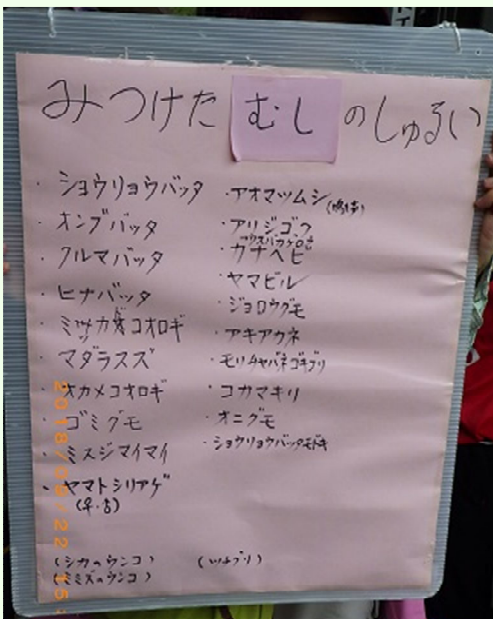 みつけた むし のしゅるい
・ショウリョウバッタ
・オンブバッタ
・クルマバッタ
・ヒナバッタ
・ミツカドコオロギ
・マダラスズ
・オカメコオロギ
・ゴミグモ
・ミスジマイマイ
・ヤマトシリアゲ
(シカのウンコ)
(ミミズのウンコ)
・アオマツムシ
・アリジゴク
・カナヘビ
・ヤマビル
・ジョロウグモ
・アキアカネ
・モリチャバネゴキブリ
・コカマキリ
・オニグモ
・ショウリョウバッタモドキ
2018/09/22 15: